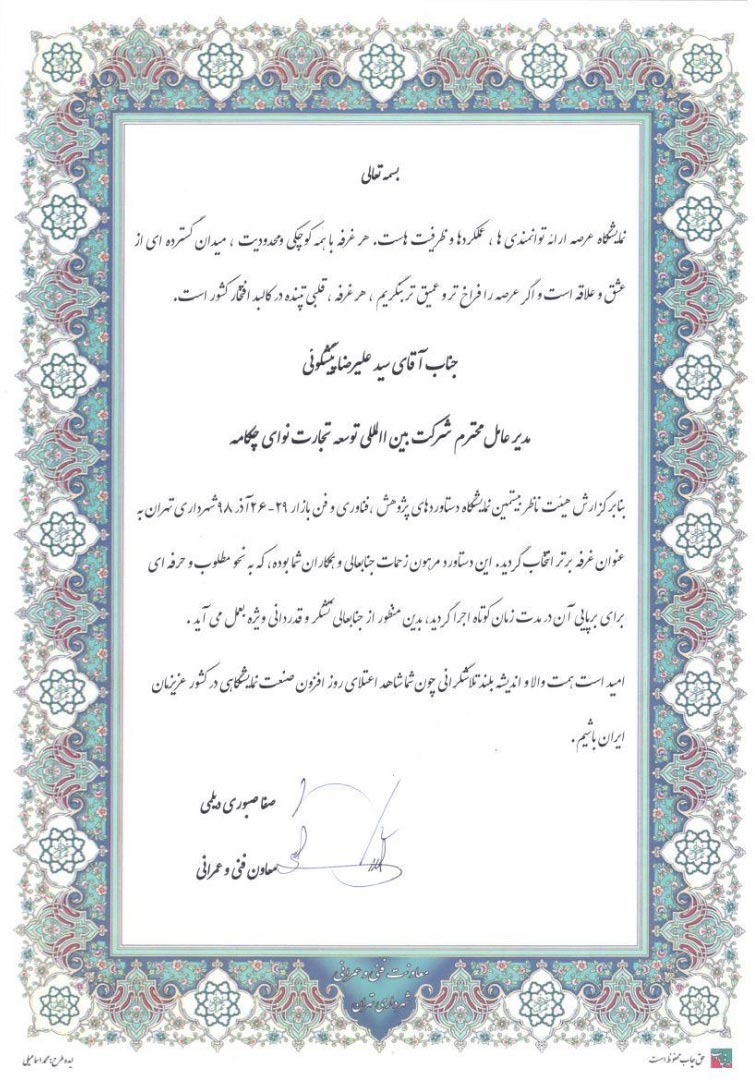 بسمه تعالی
نمایشگاه عرصه ارائه توانمندی ها ، عملکردها و ظرفیت هاست. هر غرفه با همه کوچکی و محدودیت ، میدان گسترده ای از
عشق و علاقه است و اگر عرصه را فراخ تر و عمیق تر بنگریم ، هر غرفه ، قلبی تپنده در کالبد افتخار کشور است.
جناب آقای سید علیرضا پیشگوئی
مدیر عامل محترم شرکت بین المللی توسعه تجارت نوای چکامه
بنابر گزارش هیئت ناظر بیستمین نمایشگاه دستاوردهای پژوهش ، فناوری و فن بازار ۲۹-۲۶ آذر ۹۸ شهرداری تهران به
عنوان غرفه برتر انتخاب گردید. این دستاورد مرهون زحمات جنابعالی و همکاران شما بوده، که به نحو مطلوب و حرفه ای
برای برپایی آن در مدت زمان کوتاه اجرا گردید، بدین منظور از جنابعالی تشکر و قدردانی ویژه بعمل می آید .
امید است همت والا و اندیشه بلند تلاشگرانی چون شما شاهد اعتلای روز افزون صنعت نمایشگاهی در کشور عزیزمان
ایران باشیم .
صفا صبوری دیلمی
معاون فنی و عمرانی
معاونت فنی و عمرانی
شهرداری تهران
حق چاپ محفوظ است
ایده طرح: محمد اسماعیلی